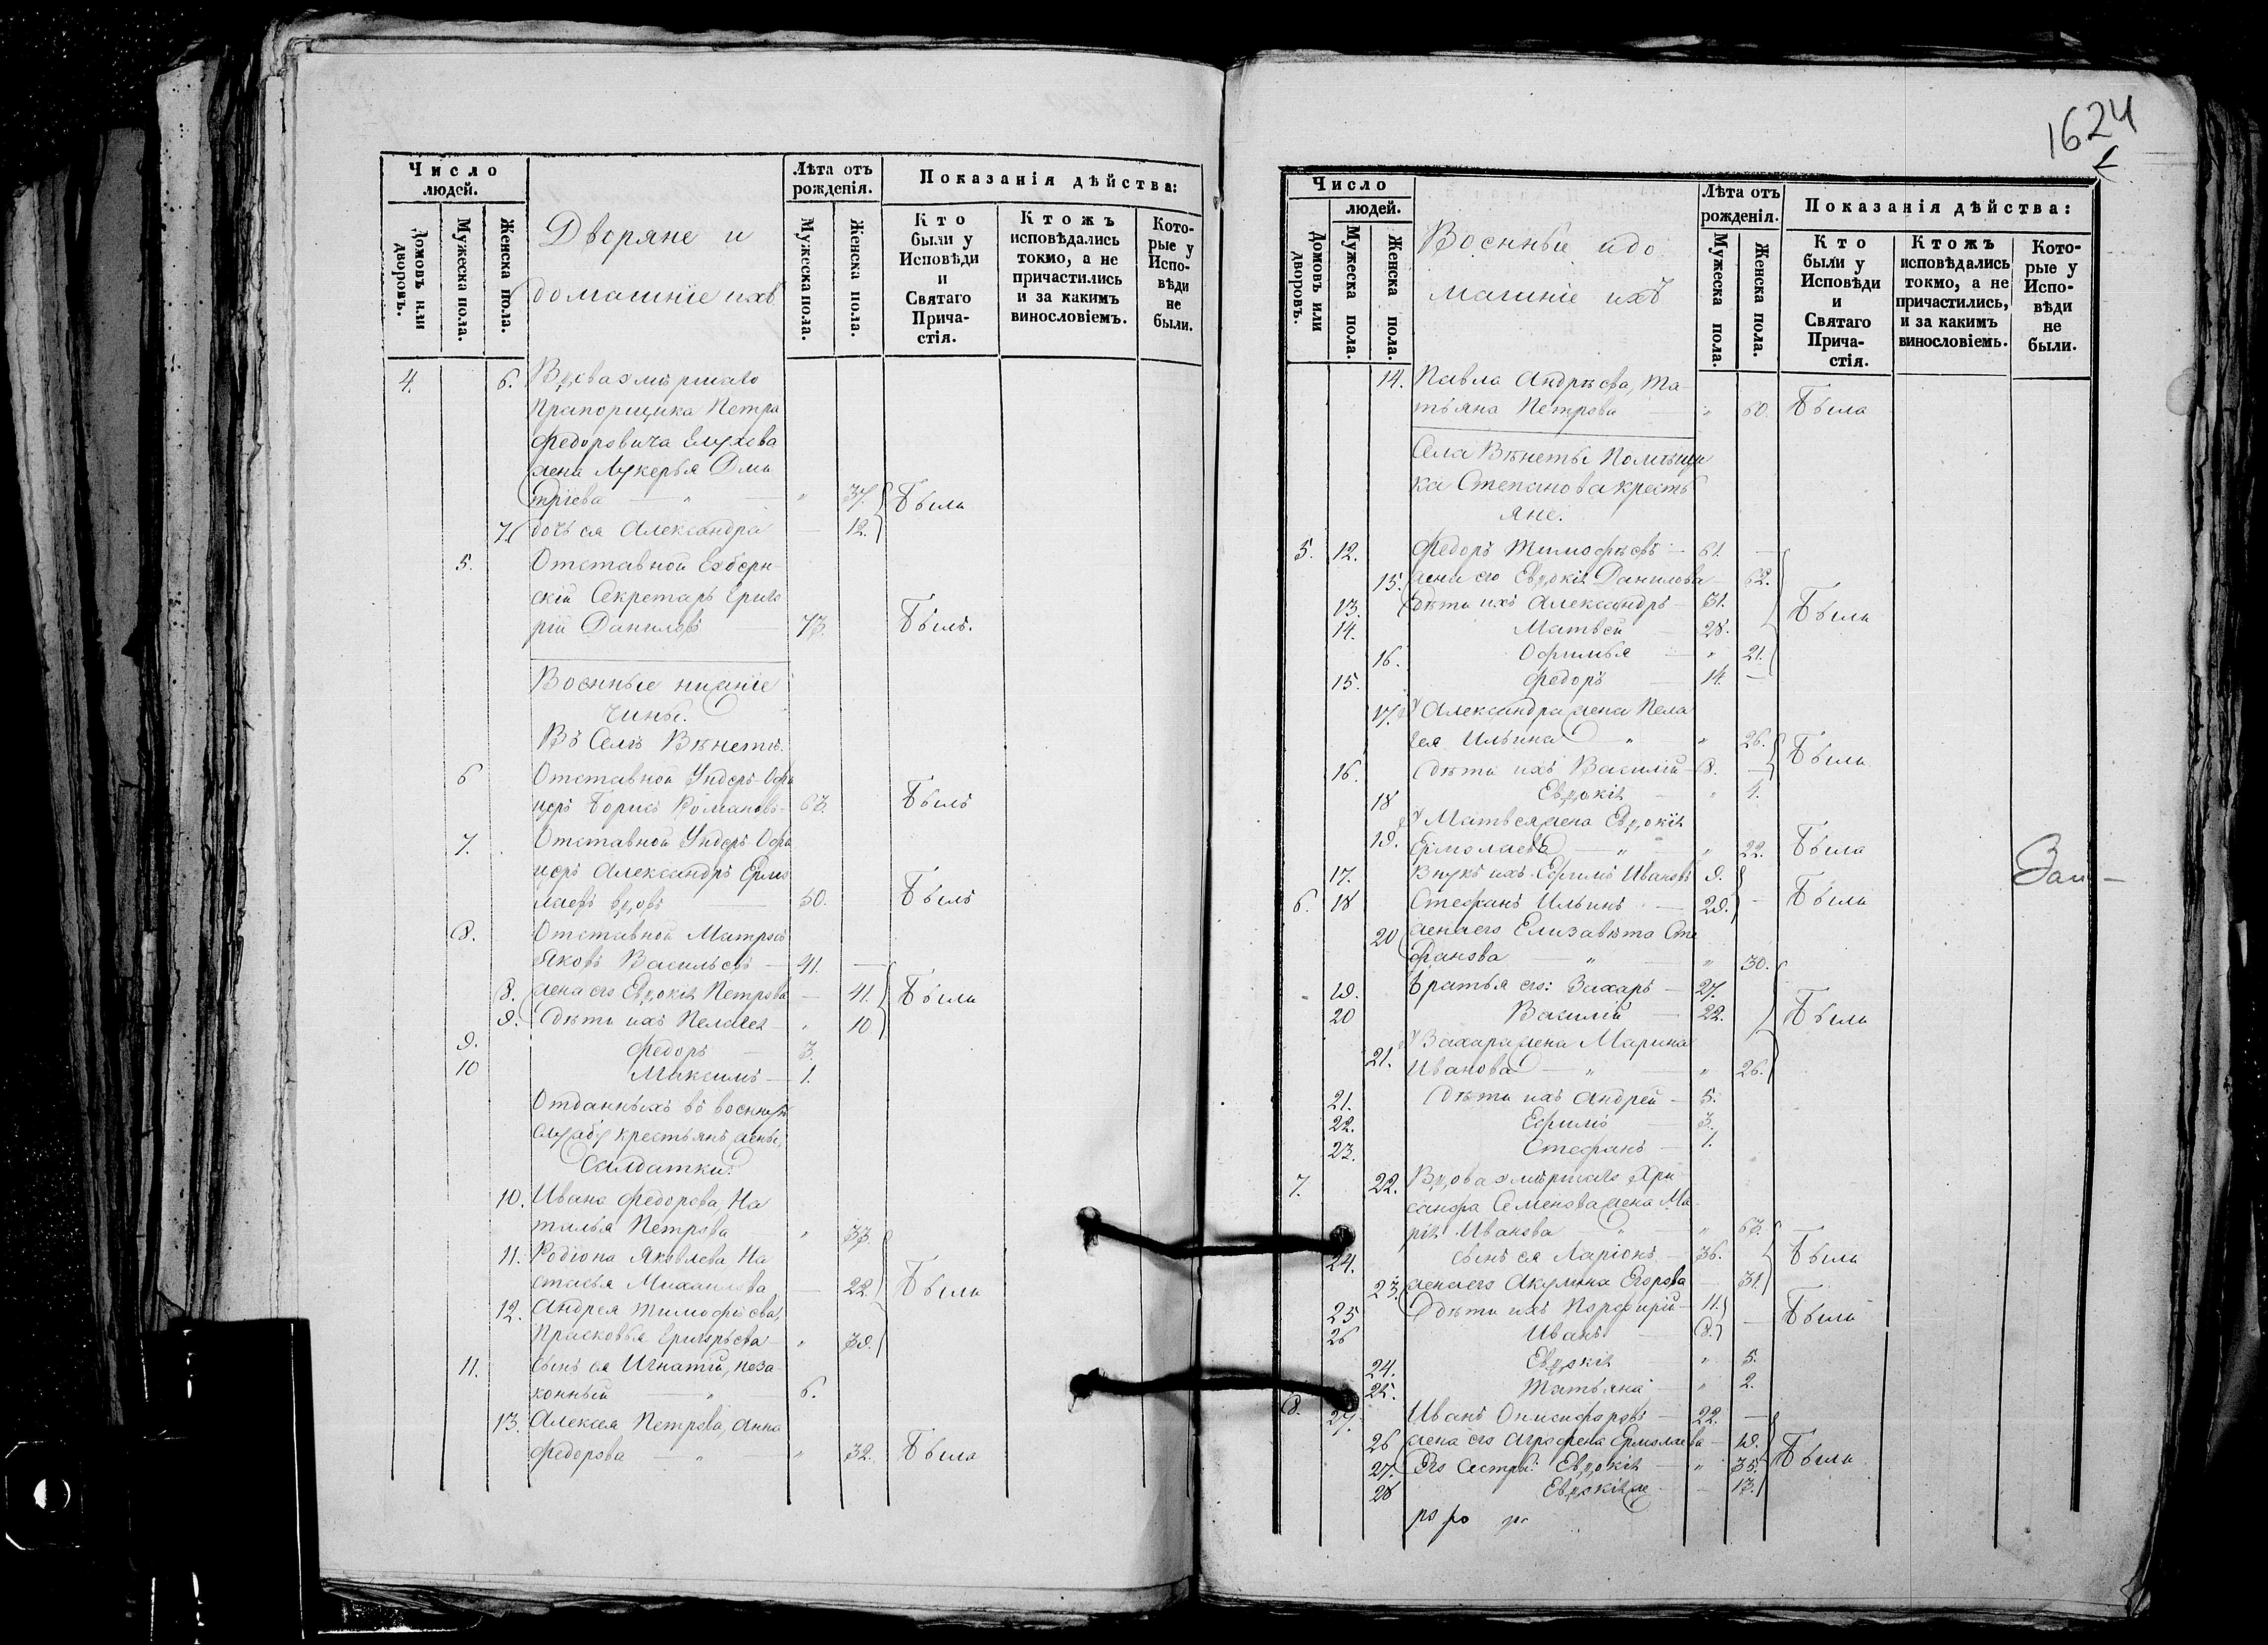 Число людей.
Домовъ или дворовъ.
Мужеска пола.
Женска пола.
Дворяне и
домашніе ихъ
Лѣта отъ рожденія.
Мужеска пола.
Женска пола.
Показанія дѣйства:
Кто были у Исповѣди и Святаго Причастія.
Ктожъ исповѣдались токмо, а не причастились и за какимъ винословіемъ.
Которые у Исповѣди не были.
4. 6. Вдова умѣршаго
Прапорщика Петра
Федоровича Елухова
жена Лукерья Дми
тріева — " — " 37. Была
7. дочь ея Александра — 12.
5. Отставной Губерн-
скій Секретарь Григо
рій Даниловъ — 73. Былъ.
Военные нижніе
чины.
Въ Селѣ Вѣнетѣ.
6 Отставной Ундеръ-Офи
церъ Борисъ Романовъ- 63. Былъ
7. Отставной Ундеръ Офи
церъ Александръ Ермо
лаевъ вдовъ — 50. Былъ
8. Отставной Матросъ
Яковъ Васильевъ — 41. —
8. жена его Евдокія Петрова — 41. Были
9. Дѣти ихъ Пелагея — " 10
9. Федоръ — 3.
10 Максимъ — 1.
Отданныхъ въ военную
службу крестьянъ жены,
Салдатки:
10. Ивана Федорова, На
талья Петрова — " 33.
11. Родіона Яковлева На
стасья Михаилова — 22. Были
12. Андрея Тимофѣева,
Прасковья Григорьева — " 39.
11. сынъ ея Игнатій, неза-
конный — " — 6.
13. Алексея Петрова, Анна
Федорова — " — " 32. Была
1624
Число людей.
Домовъ или дворовъ.
Мужеска пола.
Женска пола.
Военные и до
машніе ихъ
Лѣта отъ рожденія.
Мужеска пола.
Женска пола.
Показанія дѣйства:
Кто были у Исповѣди и Святаго Причастія.
Ктожъ исповѣдались токмо, а не причастились, и за какимъ винословіемъ.
Которые у Исповѣди не были.
14. Павла Андрѣева, Та-
тьяна Петрова — " 60. Была
Села Вѣнеты Помѣщи
ка Степанова кресть
яне.
5. 12. Федоръ Тимофѣевъ — 61. —
15. жена его Евдокія Данилова — 62.
13. Дѣти ихъ Александръ — 31. Были
14. Матвей — 28.
16. Офимья — " 21.
15. Федоръ — 14. —
17. У Александра жена Пела
гея Ильина — " — " 26. Были
16. Дѣти ихъ Василій — 8. —
18 Евдокія — " 4.
У Матвея жена Евдокія
19. Ермолаева — " — " 22. Была
17. Внукъ ихъ Ефимъ Ивановъ 9.
6. 18 Стефанъ Ильинъ — 29. — Были
20 жена его Елизавѣта Сте
фанова — " — " 30.
19. Братья его: Захаръ — 27.
20 Василій — 22. Были
У Захара жена Марина
21. Иванова — " — " 26.
21. Дѣти ихъ Андрей — 5.
22. Ефимъ — 3.
23. Стефанъ — 1.
7. 22. Вдова умѣршаго Хри
санфа Семенова жена Ма-
рія Иванова " — " 63.
24. сынъ ея Ларіонъ — 36. Были
23. жена его Акулина Егорова — 31.
25 Дѣти ихъ Порфирій — 11. Были
26 Иванъ — 8. —
24. Евдокія — " 5.
25. Татьяна — " 2.
8. 27. Иванъ Онисифоровъ — 22. —
26 жена его Агрофена Ермолаева — 19.
27. Его сестры: Евдокія — " 35. Были
28 Евдокія же — 13.